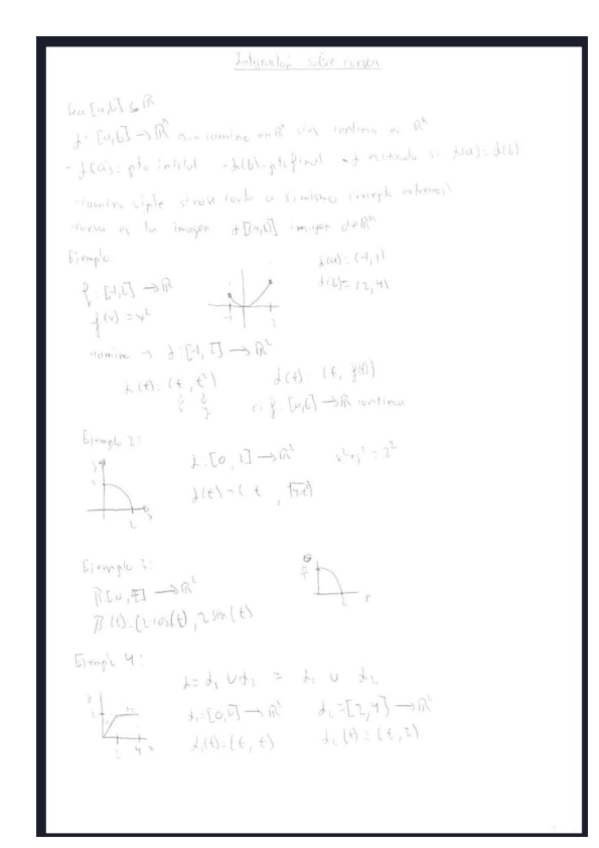 Integración sobre curvas
Sea [a,b] ⊆ ℝ
α: [a,b] → ℝⁿ es camino en ℝⁿ si es continua en ℝⁿ
- α(a) = pto inicial - α(b) = pto final α es cerrada si α(a) = α(b)
- camino siple si no se corta a si mismo (excepto extremos)
- curva es la imagen α([a,b]) imagen α en ℝⁿ
Ejemplo:
f: [-1,2] → ℝ
f(x) = x²
-1 2
α(a) = (-1,1)
α(b) = (2,4)
camino → α: [-1,2] → ℝ²
α(t) = (t, t²) α(t) = (t, f(t))
x y si f: [a,b] → ℝ continua
Ejemplo 2:
y 2 2 x
α: [0,2] → ℝ² x²+y² = 2²
α(t) = (t,
Ejemplo 3:
θ 2 r
β [0, ] → ℝ²
β(t) = (2cos(t), 2sen(t)
Ejemplo 4:
y 2 2 4 x
α = α₁ ∪ α₂ = α₁ ∪ α₂
α₁ = [0,2] → ℝ² α₂ = [2,4] → ℝ²
α₁(t) = (t, t) α₂(t) = (t, 2)